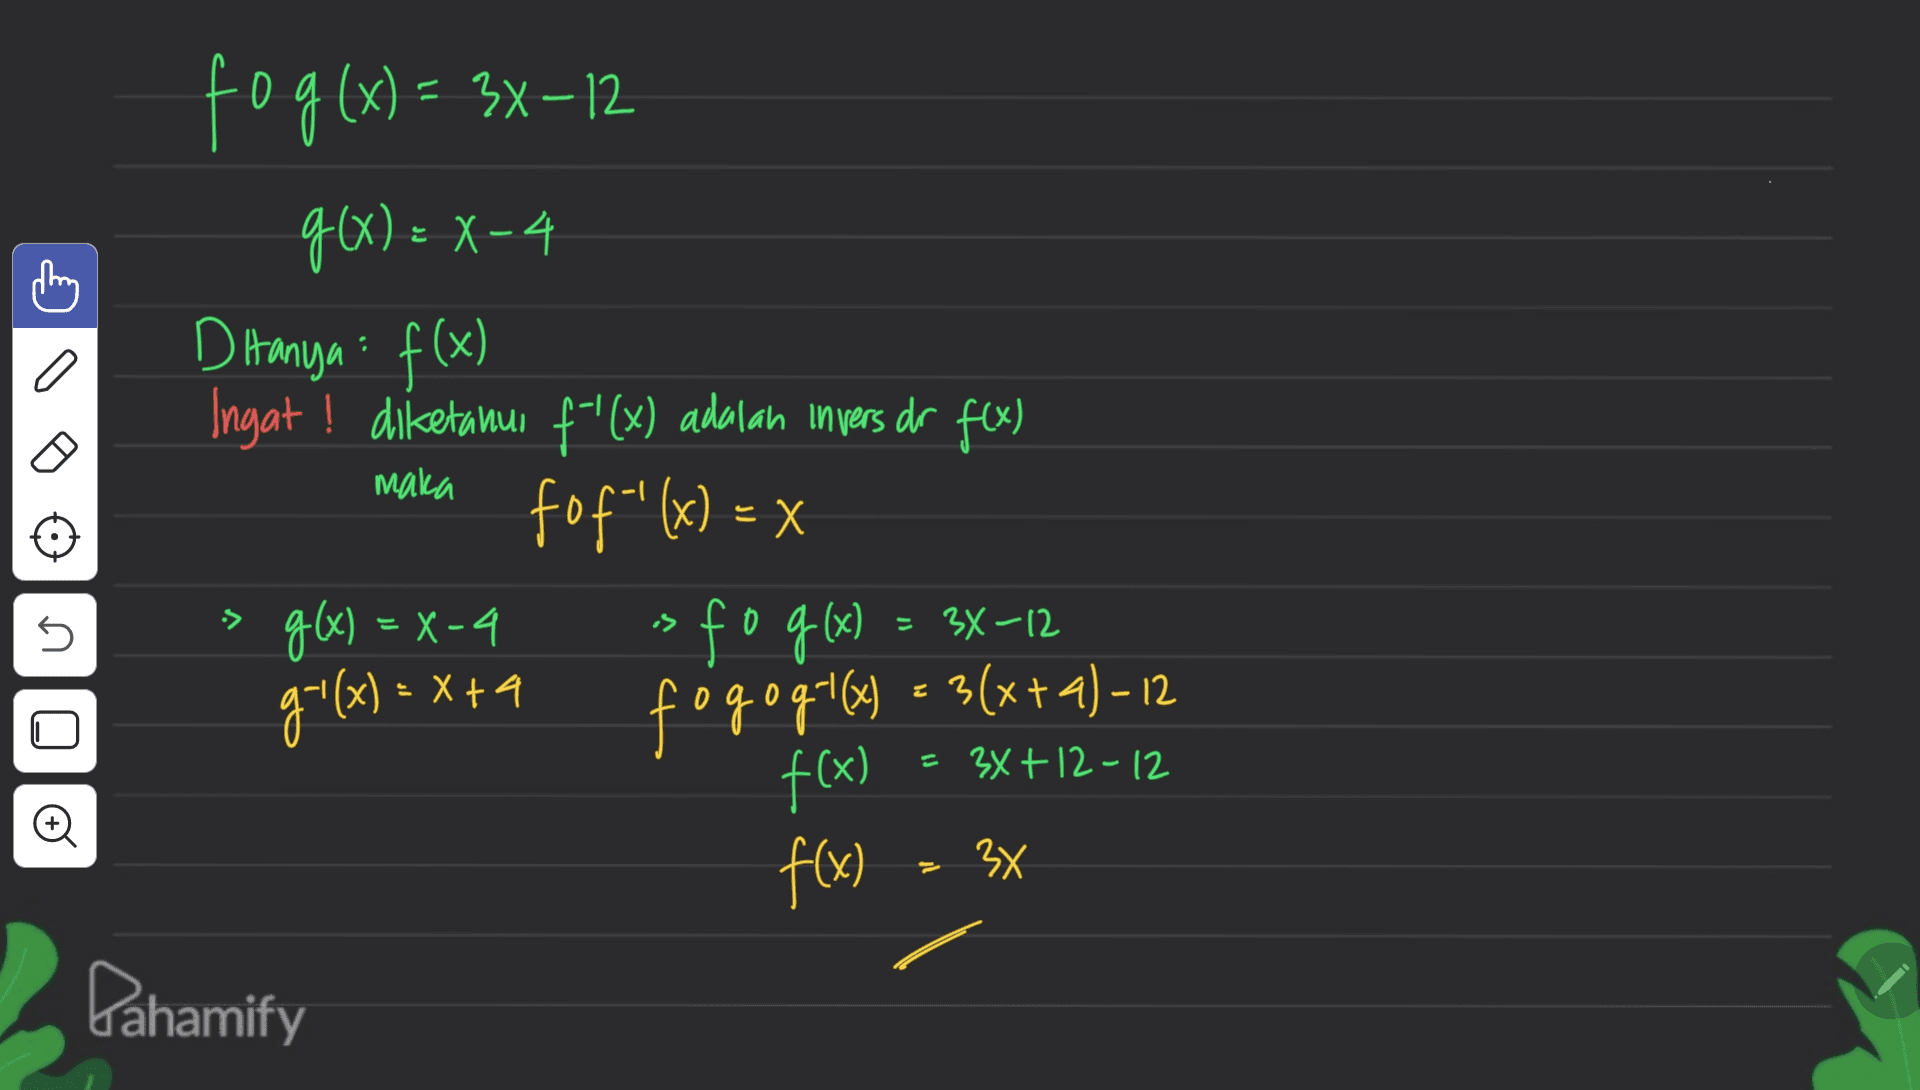 f o g (x) = 3x - 12
g(x) = x - 4
Ditanya : f(x)
Ingat ! diketahui f⁻¹(x) adalah invers dr f(x)
maka f o f⁻¹(x) = x
> g(x) = x - 4
g⁻¹(x) = x + 4
> f o g(x) = 3x - 12
f o g o g⁻¹(x) = 3(x + 4) - 12
f(x) = 3x + 12 - 12
f(x) = 3x
Pahamify